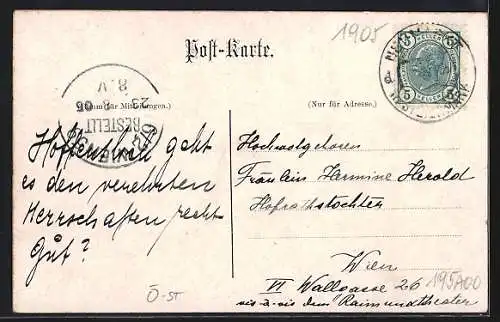 1905
Post-Karte.
(Raum für Mitteilungen.)
(Nur für Adresse.)
5 HELLER 5
BESTELLT
WIEN
8.V
Hoffentlich geht
es den verehrten
Herrschaften recht
Gut?
Hochwolgeboren
Fräulein Hermine Herold
Hofrathstochter
Wien
VI Wallgasse 26
vis-à-vis dem Raimundtheater
Ö-ST
195A00